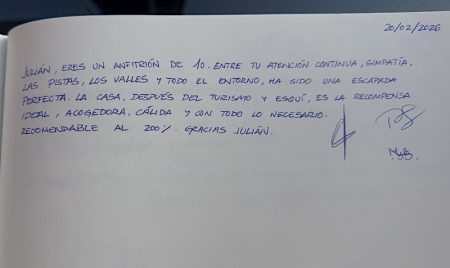 20/02/2026
JULIÁN, ERES UN ANFITRIÓN DE 10. ENTRE TU ATENCIÓN CONTINUA, SIMPATÍA,
LAS PISTAS, LOS VALLES Y TODO EL ENTORNO, HA SIDO UNA ESCAPADA
PERFECTA. LA CASA, DESPUÉS DEL TURISMO Y ESQUÍ, ES LA RECOMPENSA
IDEAL, ACOGEDORA. CÁLIDA Y CON TODO LO NECESARIO.
RECOMENDABLE AL 200%. GRACIAS JULIÁN.